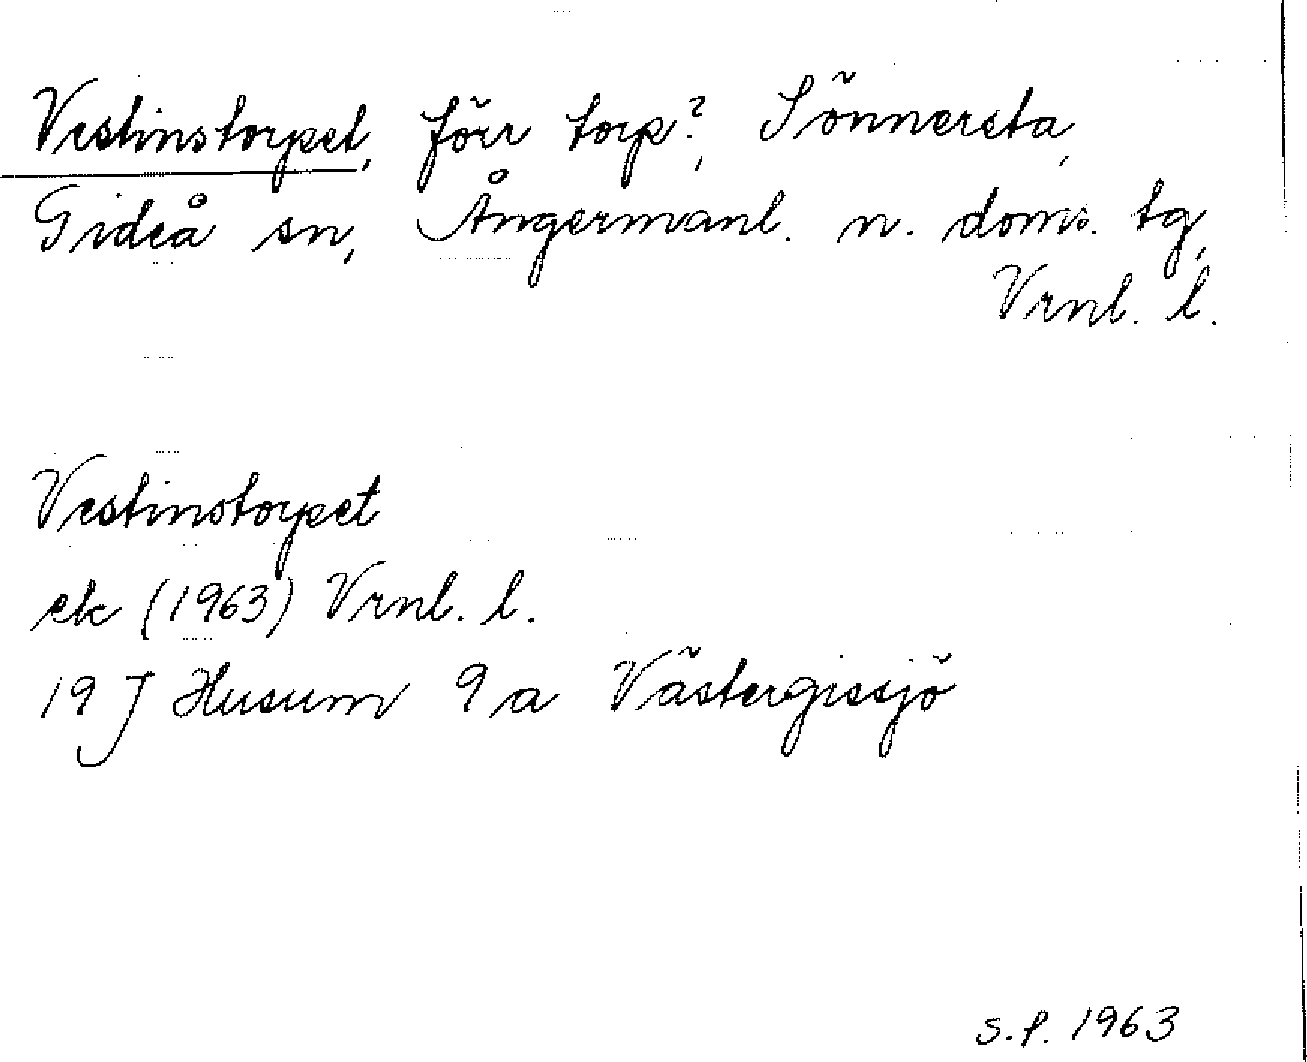 Vestinstorpet, förr torp?, Sönnersta,
Gideå sn, Ångermanl. n. doms. tg,
Vrnl. l.
Vestinstorpet
ek (1963) Vrnl. l.
19 J Husum 9 a Västergissjö
S.P. 1963